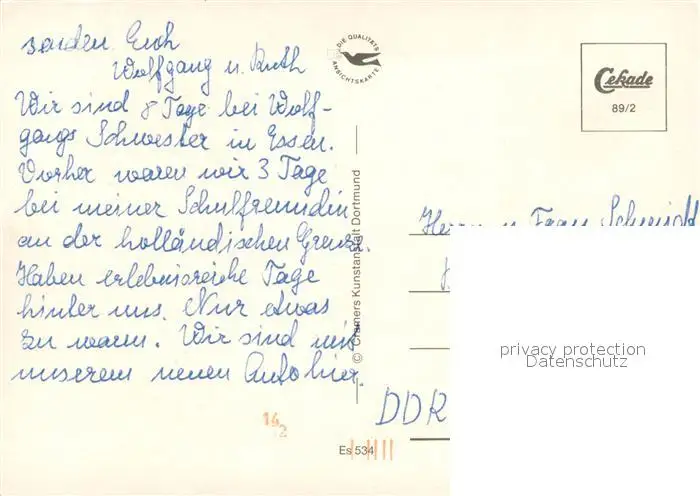 senden Euch
Wolfgang u. Ruth
Wir sind 8 Tage bei Wolf-
gangs Schwester in Essen.
Vorher waren wir 3 Tage
bei meiner Schulfreundin
an der holländischen Grenze.
Haben erlebnisreiche Tage
hinter uns. Nur etwas
zu warm. Wir sind mit
unserem neuen Auto hier.
DIE QUALITÄTS
ANSICHTSKARTE
© Cramers Kunstanstalt Dortmund
Es 534
14
2
Cekade
89/2
Herrn u. Frau Schmidt
privacy protection
Datenschutz
DDR